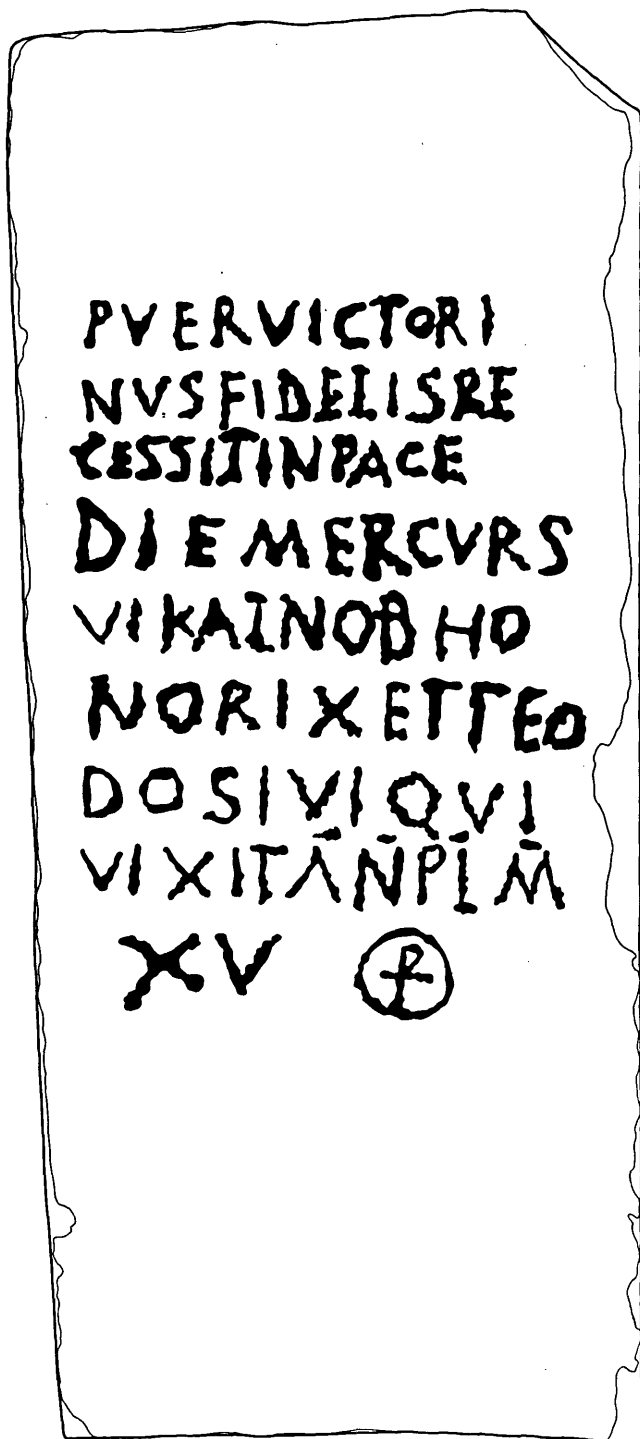 PVERVICTORI
NVSFIDELISRE
CESSITINPACE
DIEMERCVRS
VIKAINOBHO
NORIXETTEO
DOSIVIQVI
VIXITANNPLM
XV ⳨